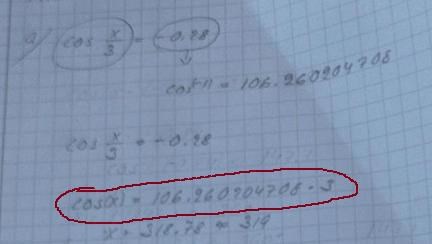 a) cos x/3 = -0.28
cos(-1) = 106.260204708
cos x/3 = -0.28
cos(x) = 106.260204708 · 3
x = 318.78 ≈ 319